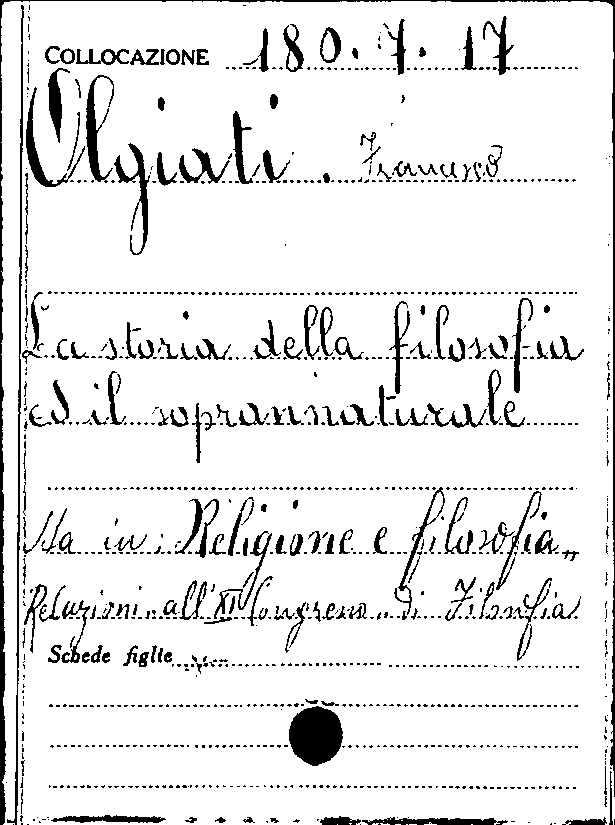 COLLOCAZIONE 180.7.17
Olgiati. Francesco
La storia della filosofia
ed il soprannaturale
Sta in: Religione e filosofia„
Relazioni all'XI Congresso di Filosofia
Schede figlie